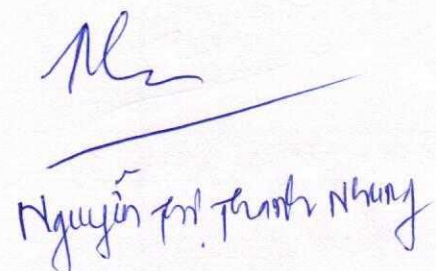 Nguyễn Thị Thanh Nhung